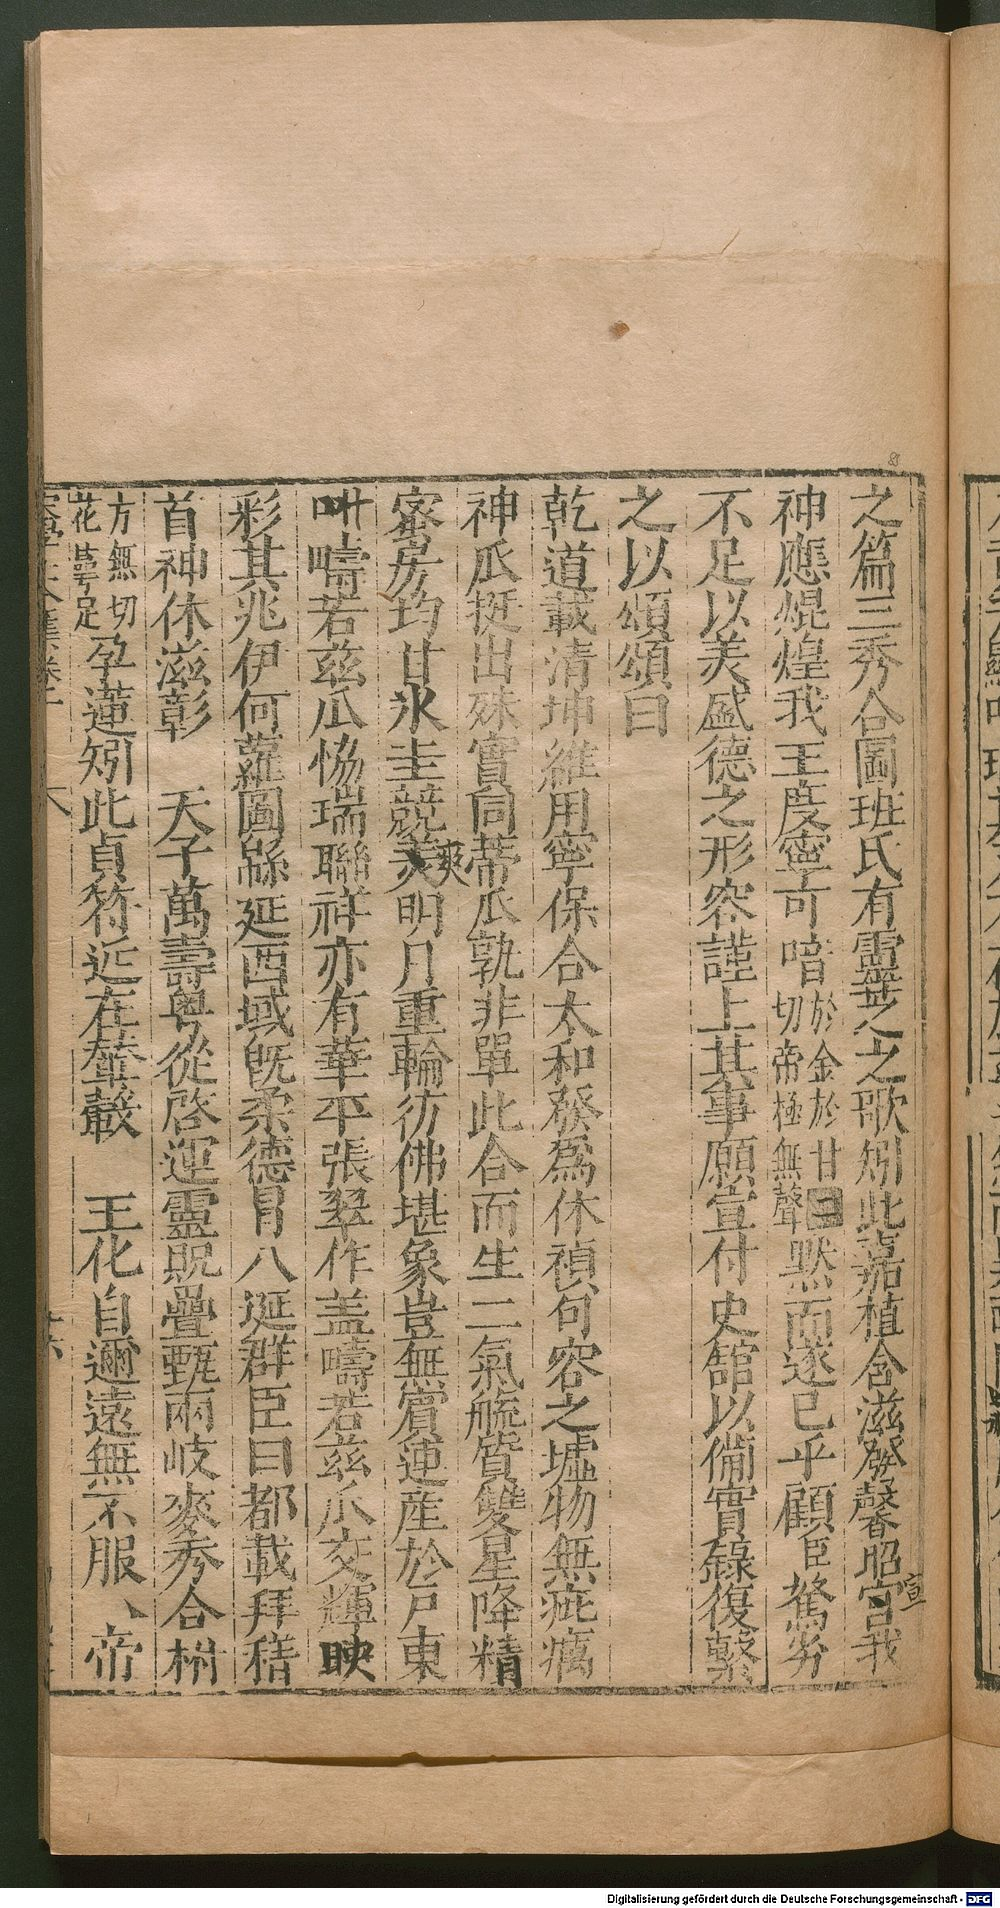 之篇三秀合圖班氏有靈芝之歌矧此嘉植含滋發馨昭宮我
宣
神應焜煌我王度寧可喑於金於甘切帝極無聲默而遂已乎顧臣駑劣
不足以美盛德之形容謹上其事願宣付史館以備實錄復繫
之以頌頌曰
乾道載清坤維用寧保合太和發為休禎句容之墟物無疵癘
神瓜挺出殊實同蒂瓜孰非單此合而生二氣毓質雙星降精
蜜房均甘氷圭競美明月重輪彷彿堪象豈無賓連產於戶東
爽
叶疇若茲瓜恊瑞聯祥亦有華平張翠作盖疇若茲瓜交輝映
彩其兆伊何蘿圖緜延西域旣柔德冐八埏群臣曰都載拜稽
首神休滋彰 天子萬壽粵從啓運靈貺疊甄兩岐麥秀合柎
方無切花萼足孕蓮矧此貞符近在輦轂 王化自邇遠無不服 帝
Digitalisierung gefördert durch die Deutsche Forschungsgemeinschaft - DFG